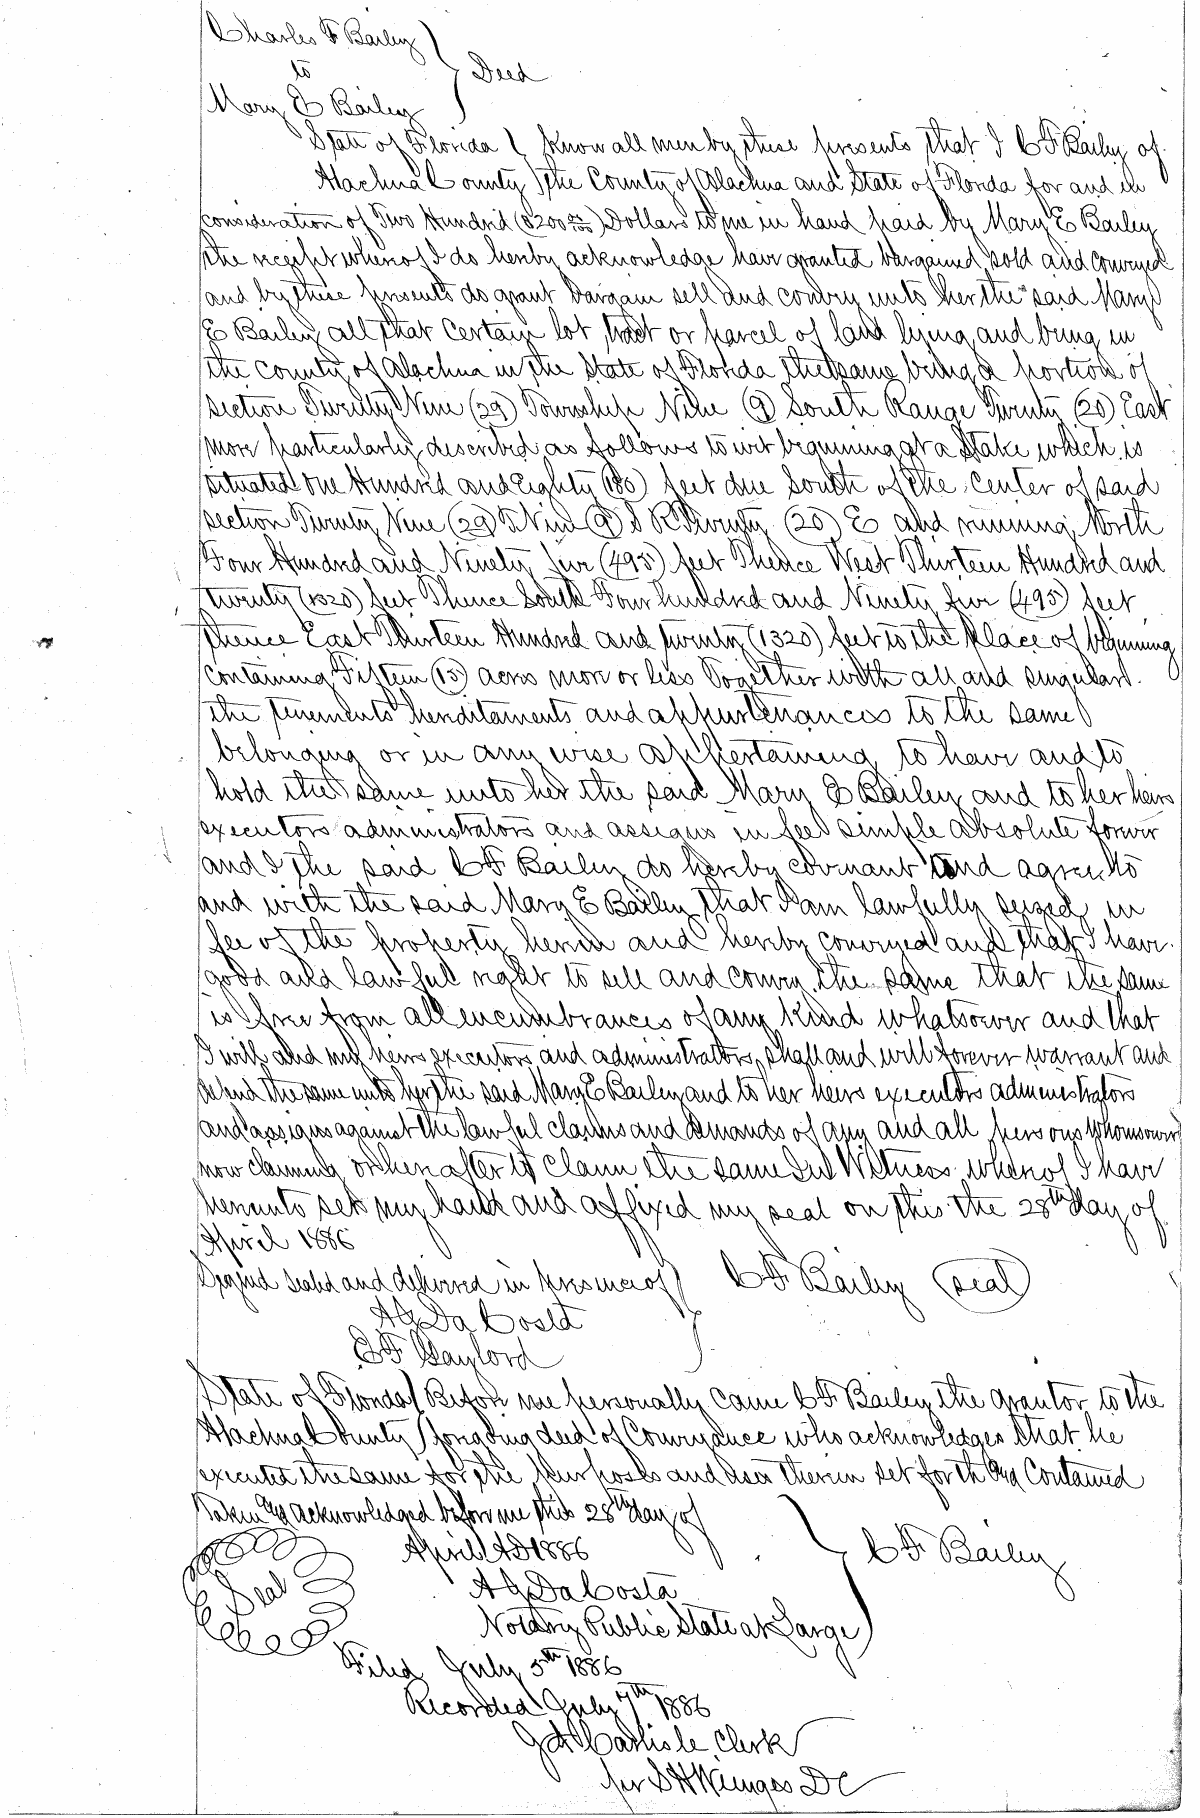 Charles F Bailey
to } Deed
Mary E Bailey
State of Florida } Know all men by these presents that I C F Bailey of
Alachua County } the County of Alachua and State of Florida for and in
consideration of Two Hundred ($200 00/100) Dollars to me in hand paid by Mary E Bailey
the receipt whereof I do hereby acknowledge have granted bargained sold and conveyed
and by these presents do grant bargain sell and convey unto her the said Mary
E Bailey all that certain lot tract or parcel of land lying and being in
the County of Alachua in the State of Florida the same being a portion of
section Twenty Nine (29) Township Nine (9) South Range Twenty (20) East
more particularly described as follows to wit beginning at a stake which is
situated One Hundred and Eighty (180) feet due South of the center of said
section Twenty Nine (29) T Nine (9) S R Twenty (20) E and running North
Four Hundred and Ninety five (495) feet Thence West Thirteen Hundred and
twenty (1320) feet Thence South Four hundred and Ninety five (495) feet
thence East Thirteen Hundred and twenty (1320) feet to the place of beginning
containing Fifteen (15) acres more or less Together with all and singular
the tenements hereditaments and appurtenances to the same
belonging or in any wise appertaining to have and to
hold the same unto her the said Mary E Bailey and to her heirs
executors administrators and assigns in fee simple absolute forever
and I the said C F Bailey do hereby covenant and agree to
and with the said Mary E Bailey that I am lawfully seized in
fee of the property herein and hereby conveyed and that I have
good and lawful right to sell and convey the same that the same
is free from all encumbrances of any kind whatsoever and that
I will and my heirs executors and administrators shall and will forever warrant and
defend the same unto her the said Mary E Bailey and to her heirs executors administrators
and assigns against the lawful claims and demands of any and all persons whomsoever
now claiming or hereafter to claim the same In Witness whereof I have
hereunto set my hand and affixed my seal on this the 28th day of
April 1886
Signed sealed and delivered in presence of } C F Bailey (seal)
A G Da Costa
E F Gaylord
State of Florida } Before me personally came C F Bailey the grantor to the
Alachua County } foregoing deed of Conveyance who acknowledges that he
executed the same for the purposes and uses therein set forth and contained
Taken and acknowledged before me this 28th day of
April AD 1886 } C F Bailey
Seal A G Da Costa
Notary Public State at Large
Filed July 5th 1886
Recorded July 7th 1886
J A Carlisle Clerk
per S H Wienges DC